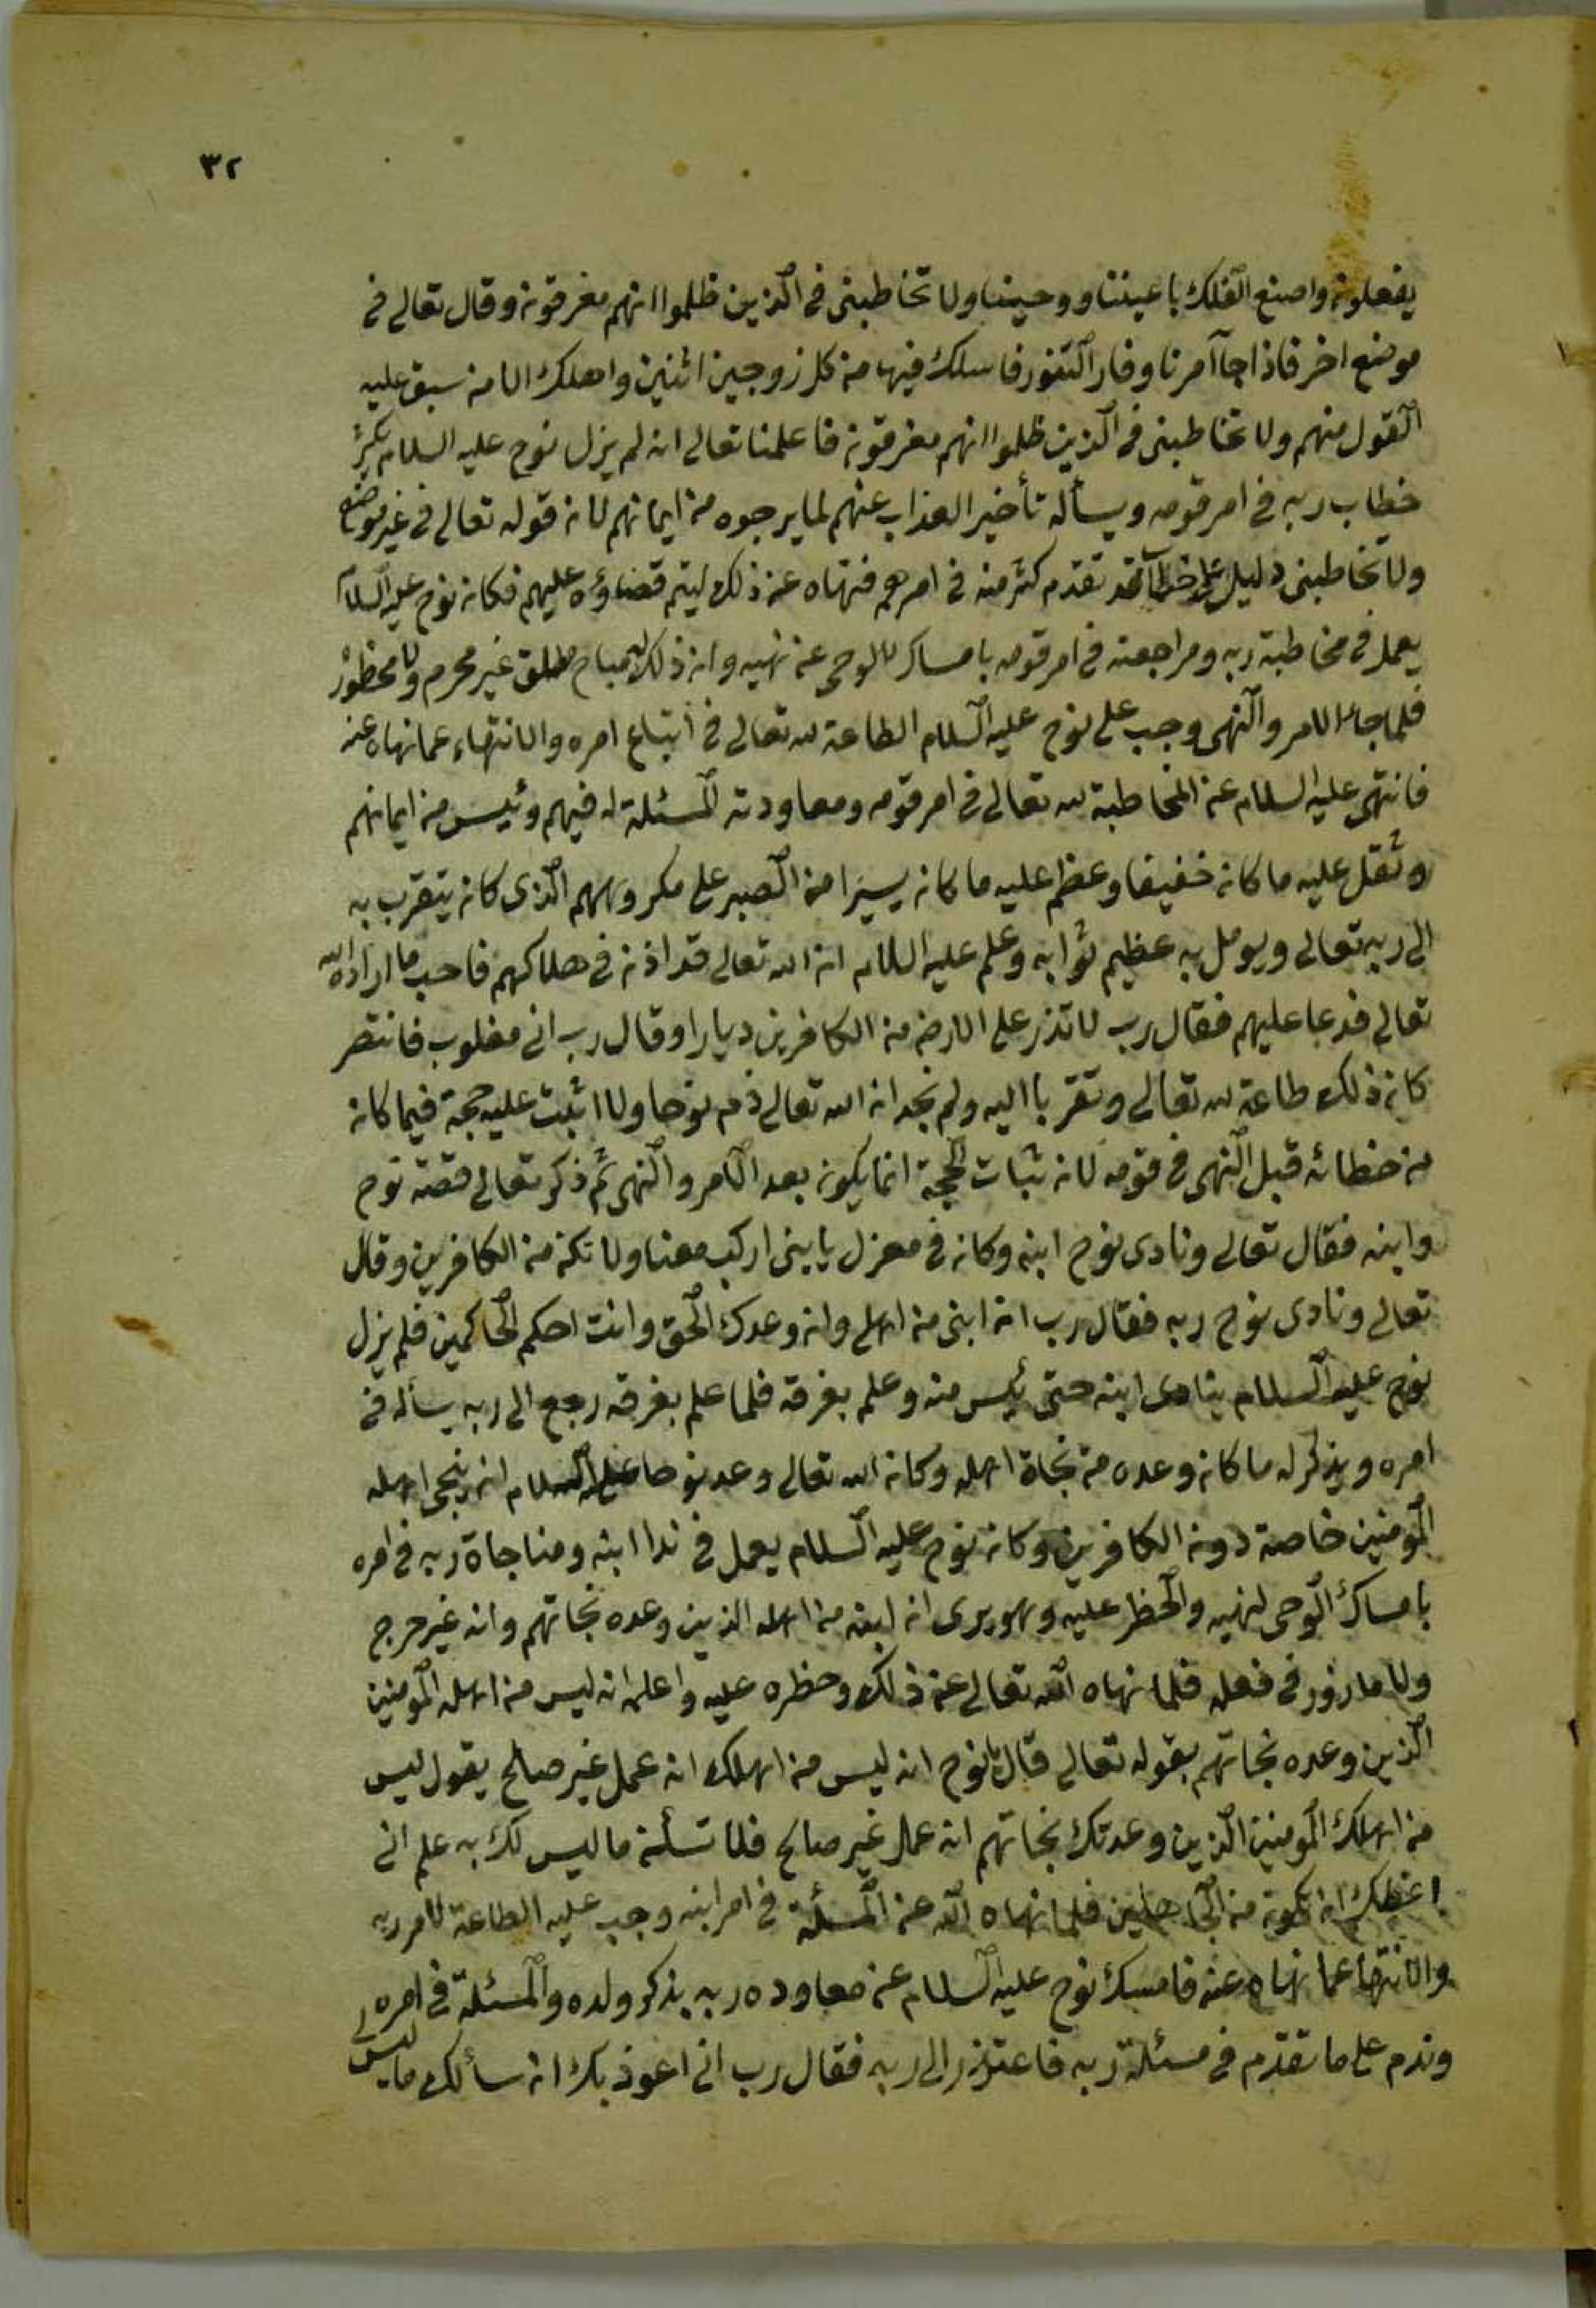 ٣٢
يفعلون واصنع الفلك باعيننا ووحينا ولا تخاطبنى فى الذين ظلموا انهم مغرقون وقال تعالى فى
موضع اخر فاذا جآ امرنا وفار التنور فاسلك فيها من كل زوجين اثنين واهلك الا من سبق عليه
القول منهم ولا تخاطبنى فى الذين ظلموا انهم مغرقون فاعلمنا تعالى انه لم يزل نوح عليه السلام يكرر
خطاب ربه فى امر قومه ويسأله تأخير العذاب عنهم لما يرجوه من ايمانهم لان قوله تعالى فى غير موضع
ولا تخاطبنى دليل على خطاب قد تقدم كثر منه فى امرهم فنهاه عن ذلك ليتم قضاؤه عليهم فكان نوح عليه السلام
يعمل فى مخاطبة ربه ومراجعته فى امر قومه بامساك الوحى عن نهيه وان ذلك له مباح مطلق غير محرم ولا محظور
فلما جاء الامر والنهى وجب على نوح عليه السلام الطاعة لله تعالى فى اتباع امره والانتهاء عما نهاه عنه
فانتهى عليه السلام عن المخاطبة لله تعالى فى امر قومه ومعاودته المسئلة له فيهم وئيس من ايمانهم
وثقل عليه ما كان خفيفا وعظم عليه ما كان يسيرا من الصبر على مكروههم الذى كان يتقرب به
الى ربه تعالى ويومل به عظيم ثوابه وعلم عليه السلام ان الله تعالى قد اذن فى هلاكهم فاحب ما اراده الله
تعالى فدعا عليهم فقال رب لا تذر على الارض من الكافرين ديارا وقال رب انى مغلوب فانتصر
كان ذلك طاعة لله تعالى وتقربا اليه ولم نجد ان الله تعالى ذم نوحا ولا اثبت عليه حجة فيما كان
من خطائه قبل النهى فى قومه لان ثبات الحجة انما يكون بعد الامر والنهى ثم ذكر تعالى قصة نوح
وابنه فقال تعالى ونادى نوح ابنه وكان فى معزل يا بنى اركب معنا ولا تكن من الكافرين وقال
تعالى ونادى نوح ربه فقال رب ان ابنى من اهلى وان وعدك الحق وانت احكم الحاكمين فلم يزل
نوح عليه السلام ينادى ابنه حتى يئس منه وعلم بغرقه فلما علم بغرقه رجع الى ربه يسأله فى
امره ويذكر له ما كان وعده من نجاة اهله وكان الله تعالى وعد نوحا عليه السلام ان ينجى اهله
المومنين خاصة دون الكافرين وكان نوح عليه السلام يعمل فى ندا ابنه ومناجاة ربه فى امره
بامساك الوحى لنهيه والحظر عليه وهو يرى ان ابنه من اهله الذين وعده نجاتهم وانه غير حرج
ولا مازور فى فعله فلما نهاه الله تعالى عن ذلك وحظره عليه واعلمه انه ليس من اهله المومنين
الذين وعده نجاتهم بقوله تعالى قال يا نوح انه ليس من اهلك انه عمل غير صالح يقول ليس
من اهلك المومنين الذين وعدتك نجاتهم انه عمل غير صالح فلا تسئلن ما ليس لك به علم انى
اعظك ان تكون من الجاهلين فلما نهاه الله عن المسألة فى امر ابنه وجب عليه الطاعة لامر ربه
والانتها عما نهاه عنه فامسك نوح عليه السلام عن معاوده ربه بذكر ولده والمسئلة فى امره
وندم على ما تقدم فى مسئلة ربه فاعتذر الى ربه فقال رب انى اعوذ بك ان سألك ما ليس لى